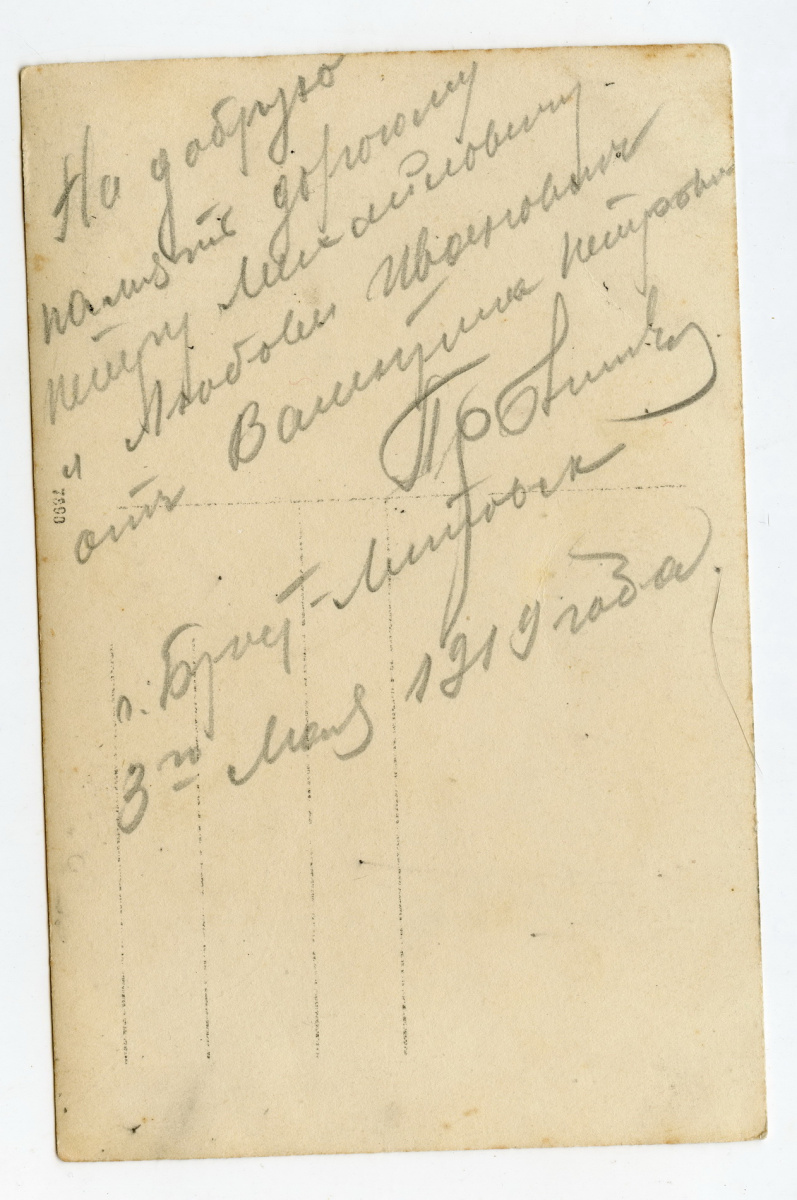 На добрую
память дорогому
Петру Михайловичу
и Любови Иванович
отъ Валентина Петрович
г. Брест-Литовск
3го Мая 1919 года
0687